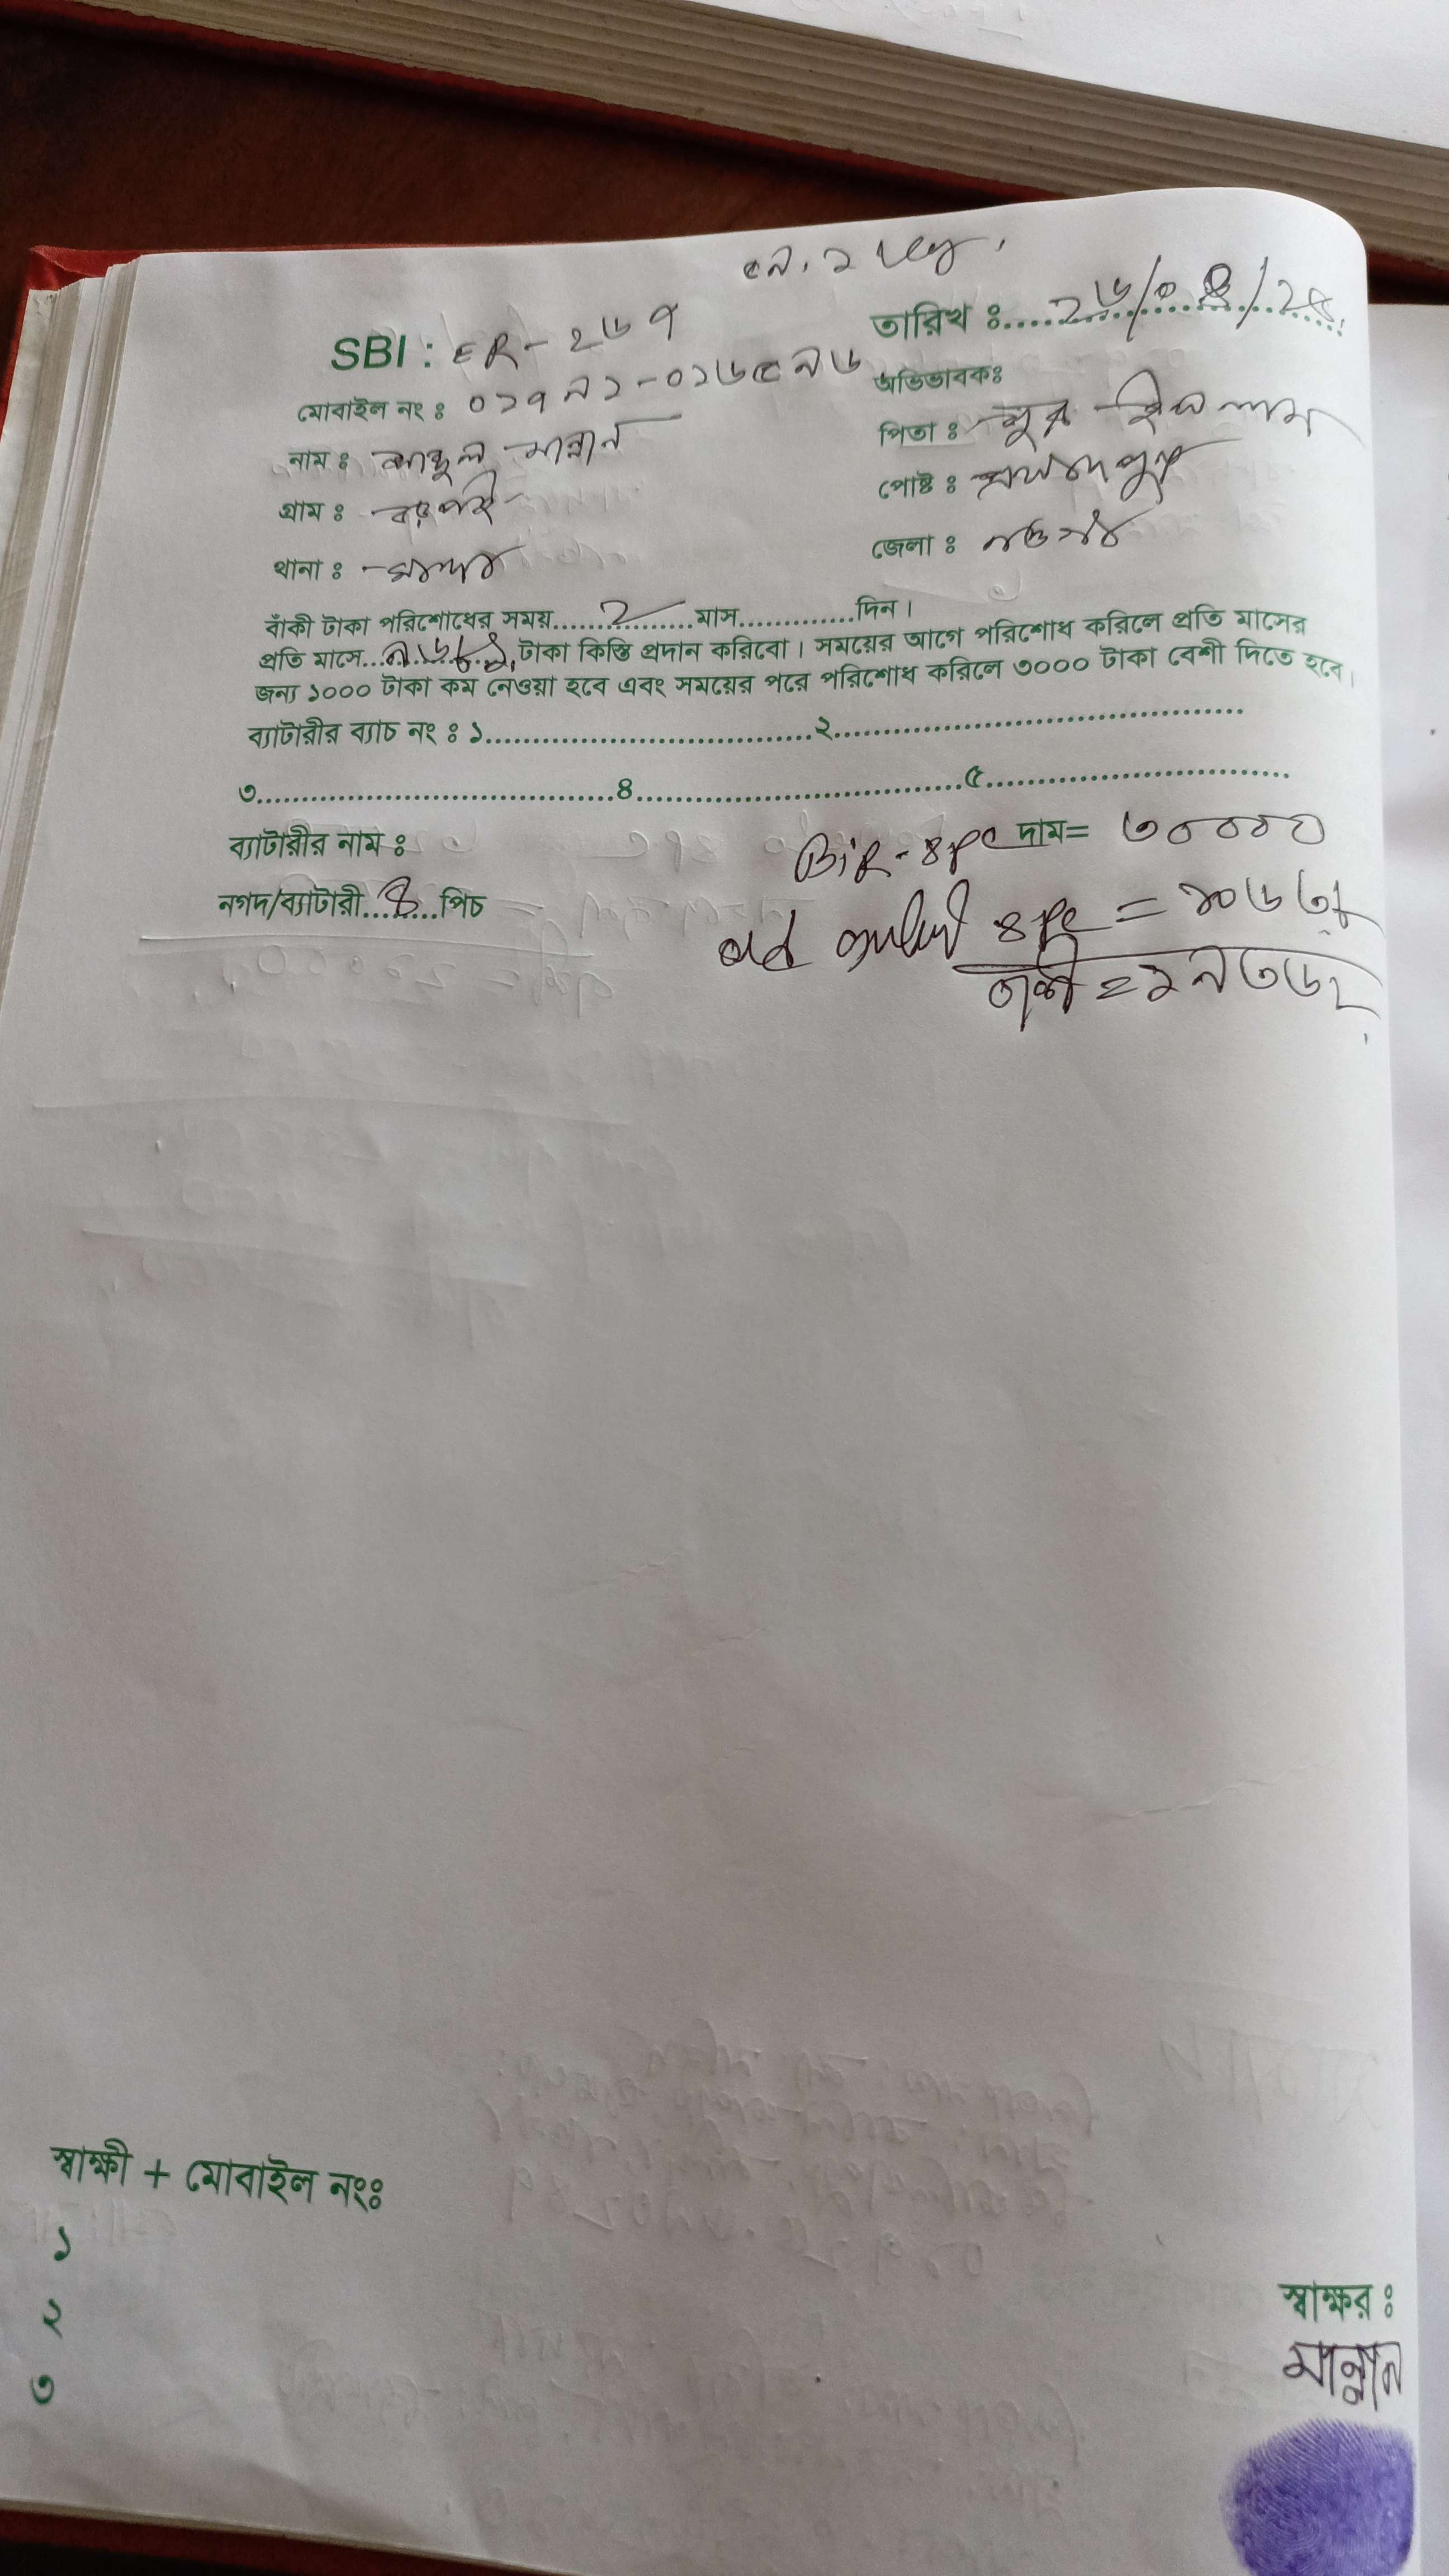 SBI : ER- ২৬৭
তারিখ ঃ.... ২৬/০৪/২৫
মোবাইল নং ঃ ০১৭৯১-০১৬৫৯৬
অভিভাবকঃ
নাম ঃ আব্দুল মান্নান
পিতা ঃ নুর ইসলাম
গ্রাম ঃ বড়পই
পোষ্ট ঃ
থানা ঃ মান্দা
জেলা ঃ নওগাঁ
বাঁকী টাকা পরিশোধের সময়......২......মাস.............দিন।
প্রতি মাসে...৯৬৮১ টাকা কিস্তি প্রদান করিবো। সময়ের আগে পরিশোধ করিলে প্রতি মাসের
জন্য ১০০০ টাকা কম নেওয়া হবে এবং সময়ের পরে পরিশোধ করিলে ৩০০০ টাকা বেশী দিতে হবে।
ব্যাটারীর ব্যাচ নং ঃ ১..................................২........................................
৩.....................................৪..................................৫................................
ব্যাটারীর নাম ঃ
BiR - ৪pc দাম= ৩০০০০
নগদ/ব্যাটারী....৪....পিচ
old ৪pc = ১০৬৩৮
বাকী = ১৯৩৬২
স্বাক্ষী + মোবাইল নংঃ
১
২
৩
স্বাক্ষর ঃ
মান্নান